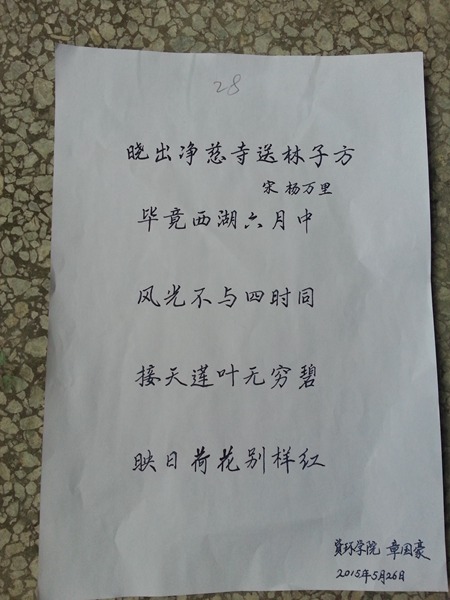 28
晓出净慈寺送林子方
宋 杨万里
毕竟西湖六月中
风光不与四时同
接天莲叶无穷碧
映日荷花别样红
资环学院 章国豪
2015年5月26日